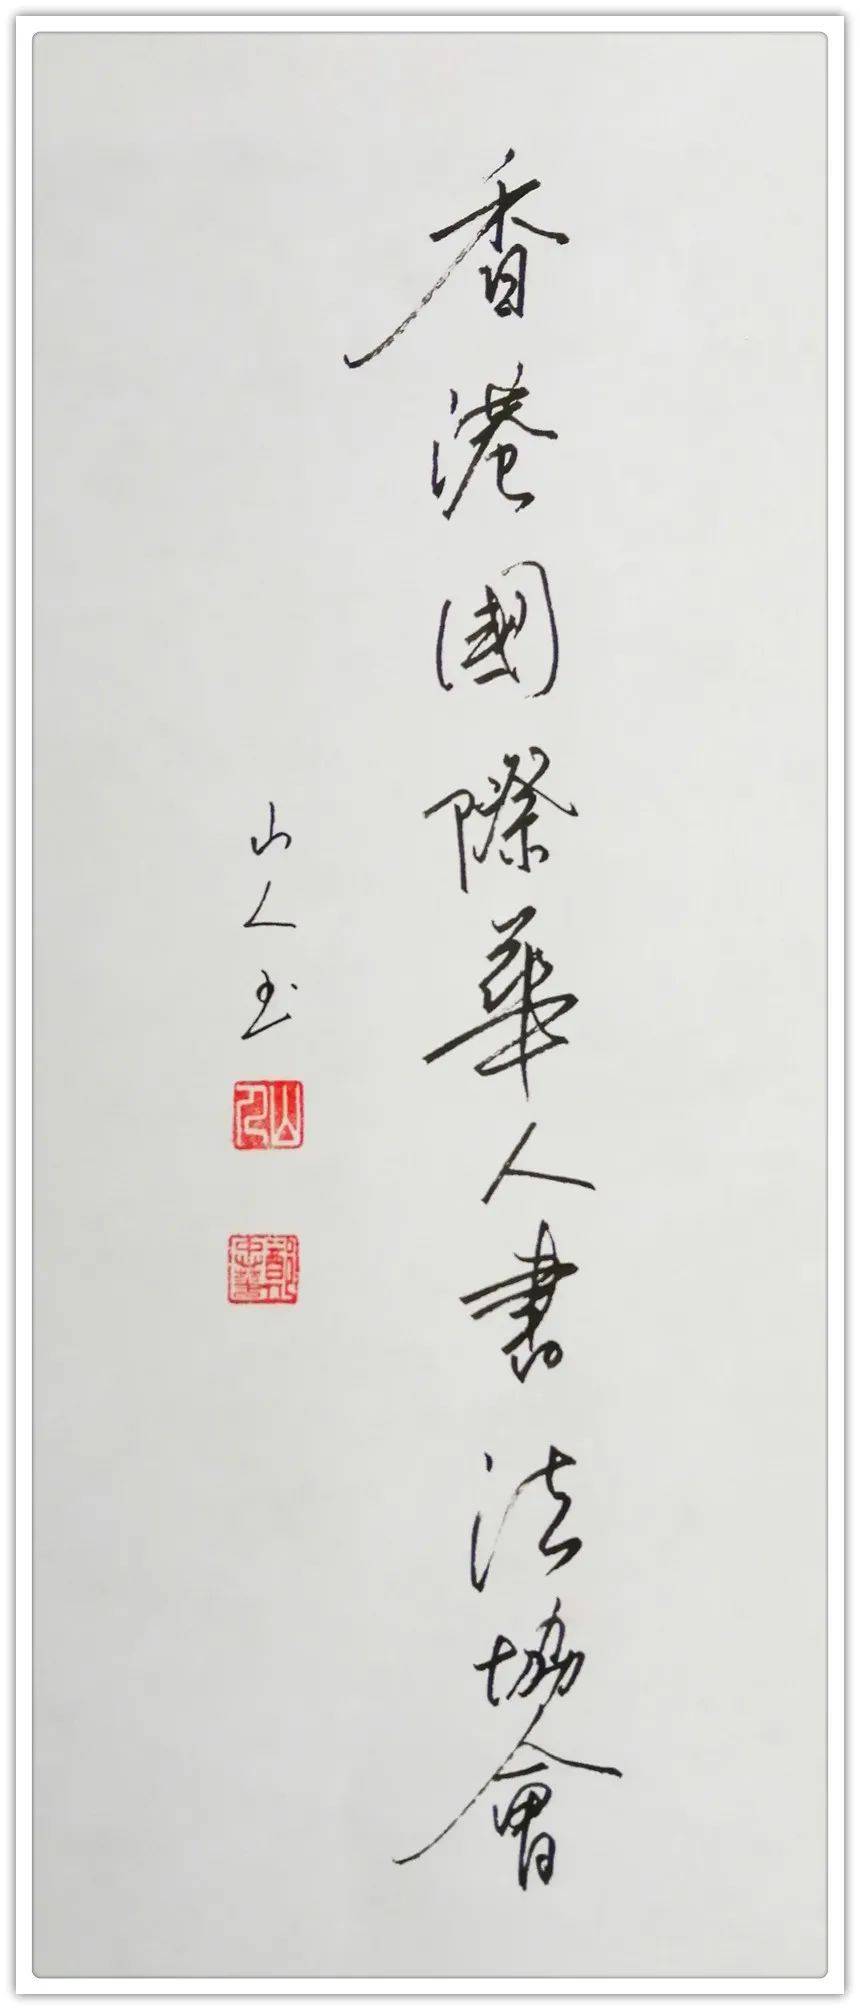 香港國際華人書法協會
山人
山人